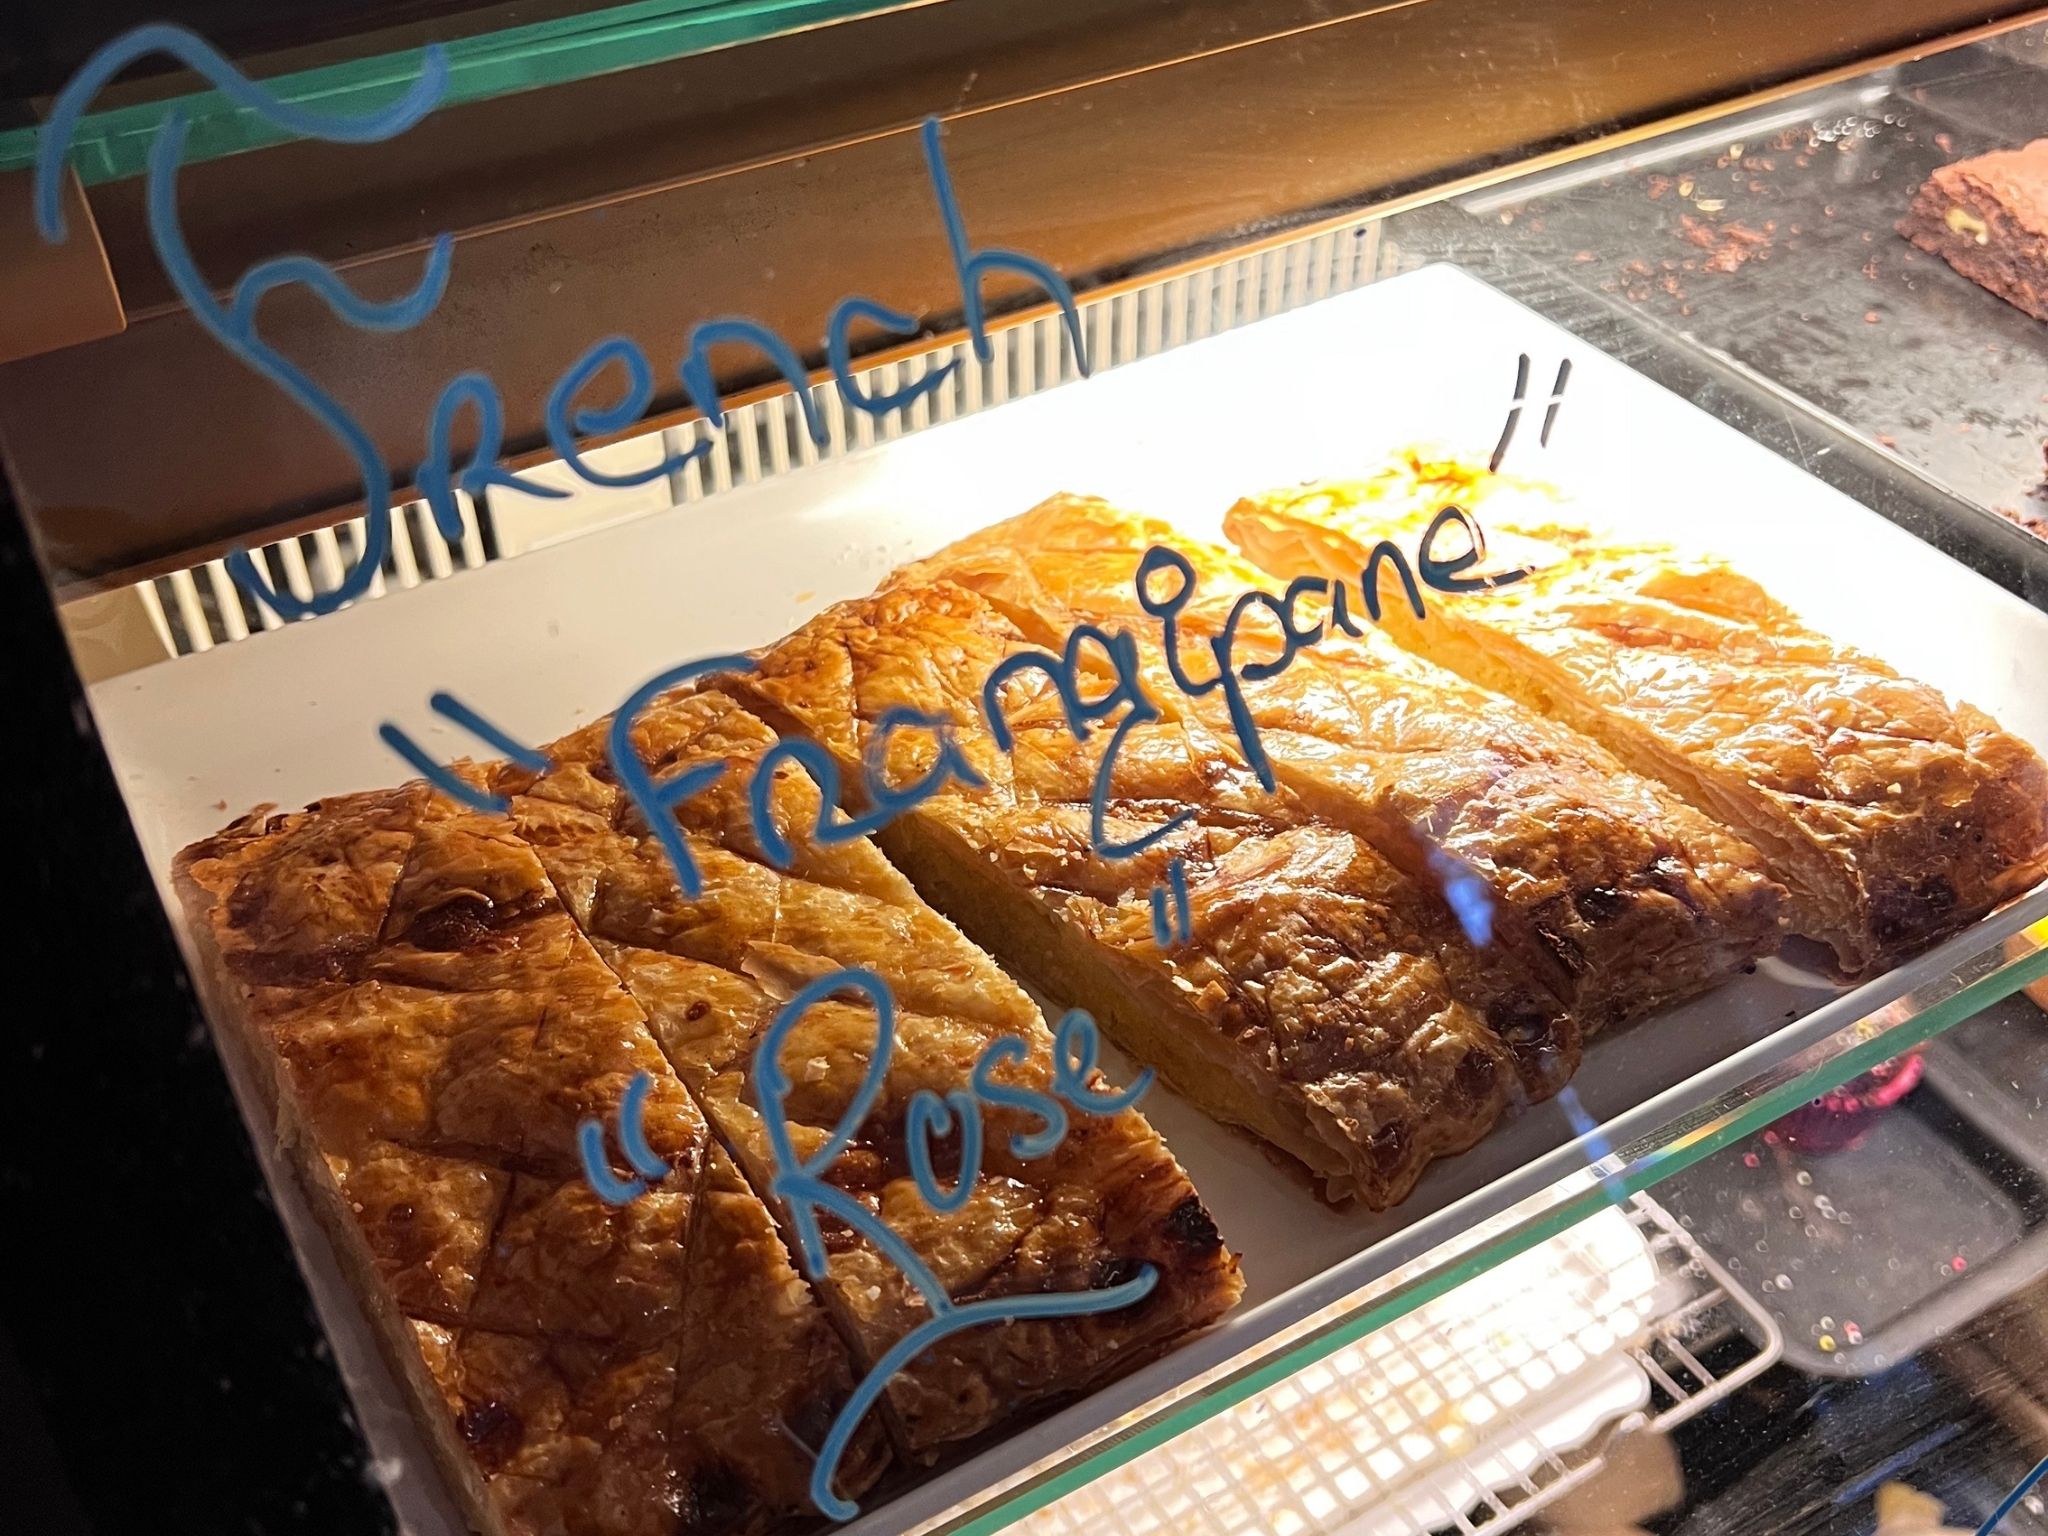 French
"Frangipane"
"Rose"